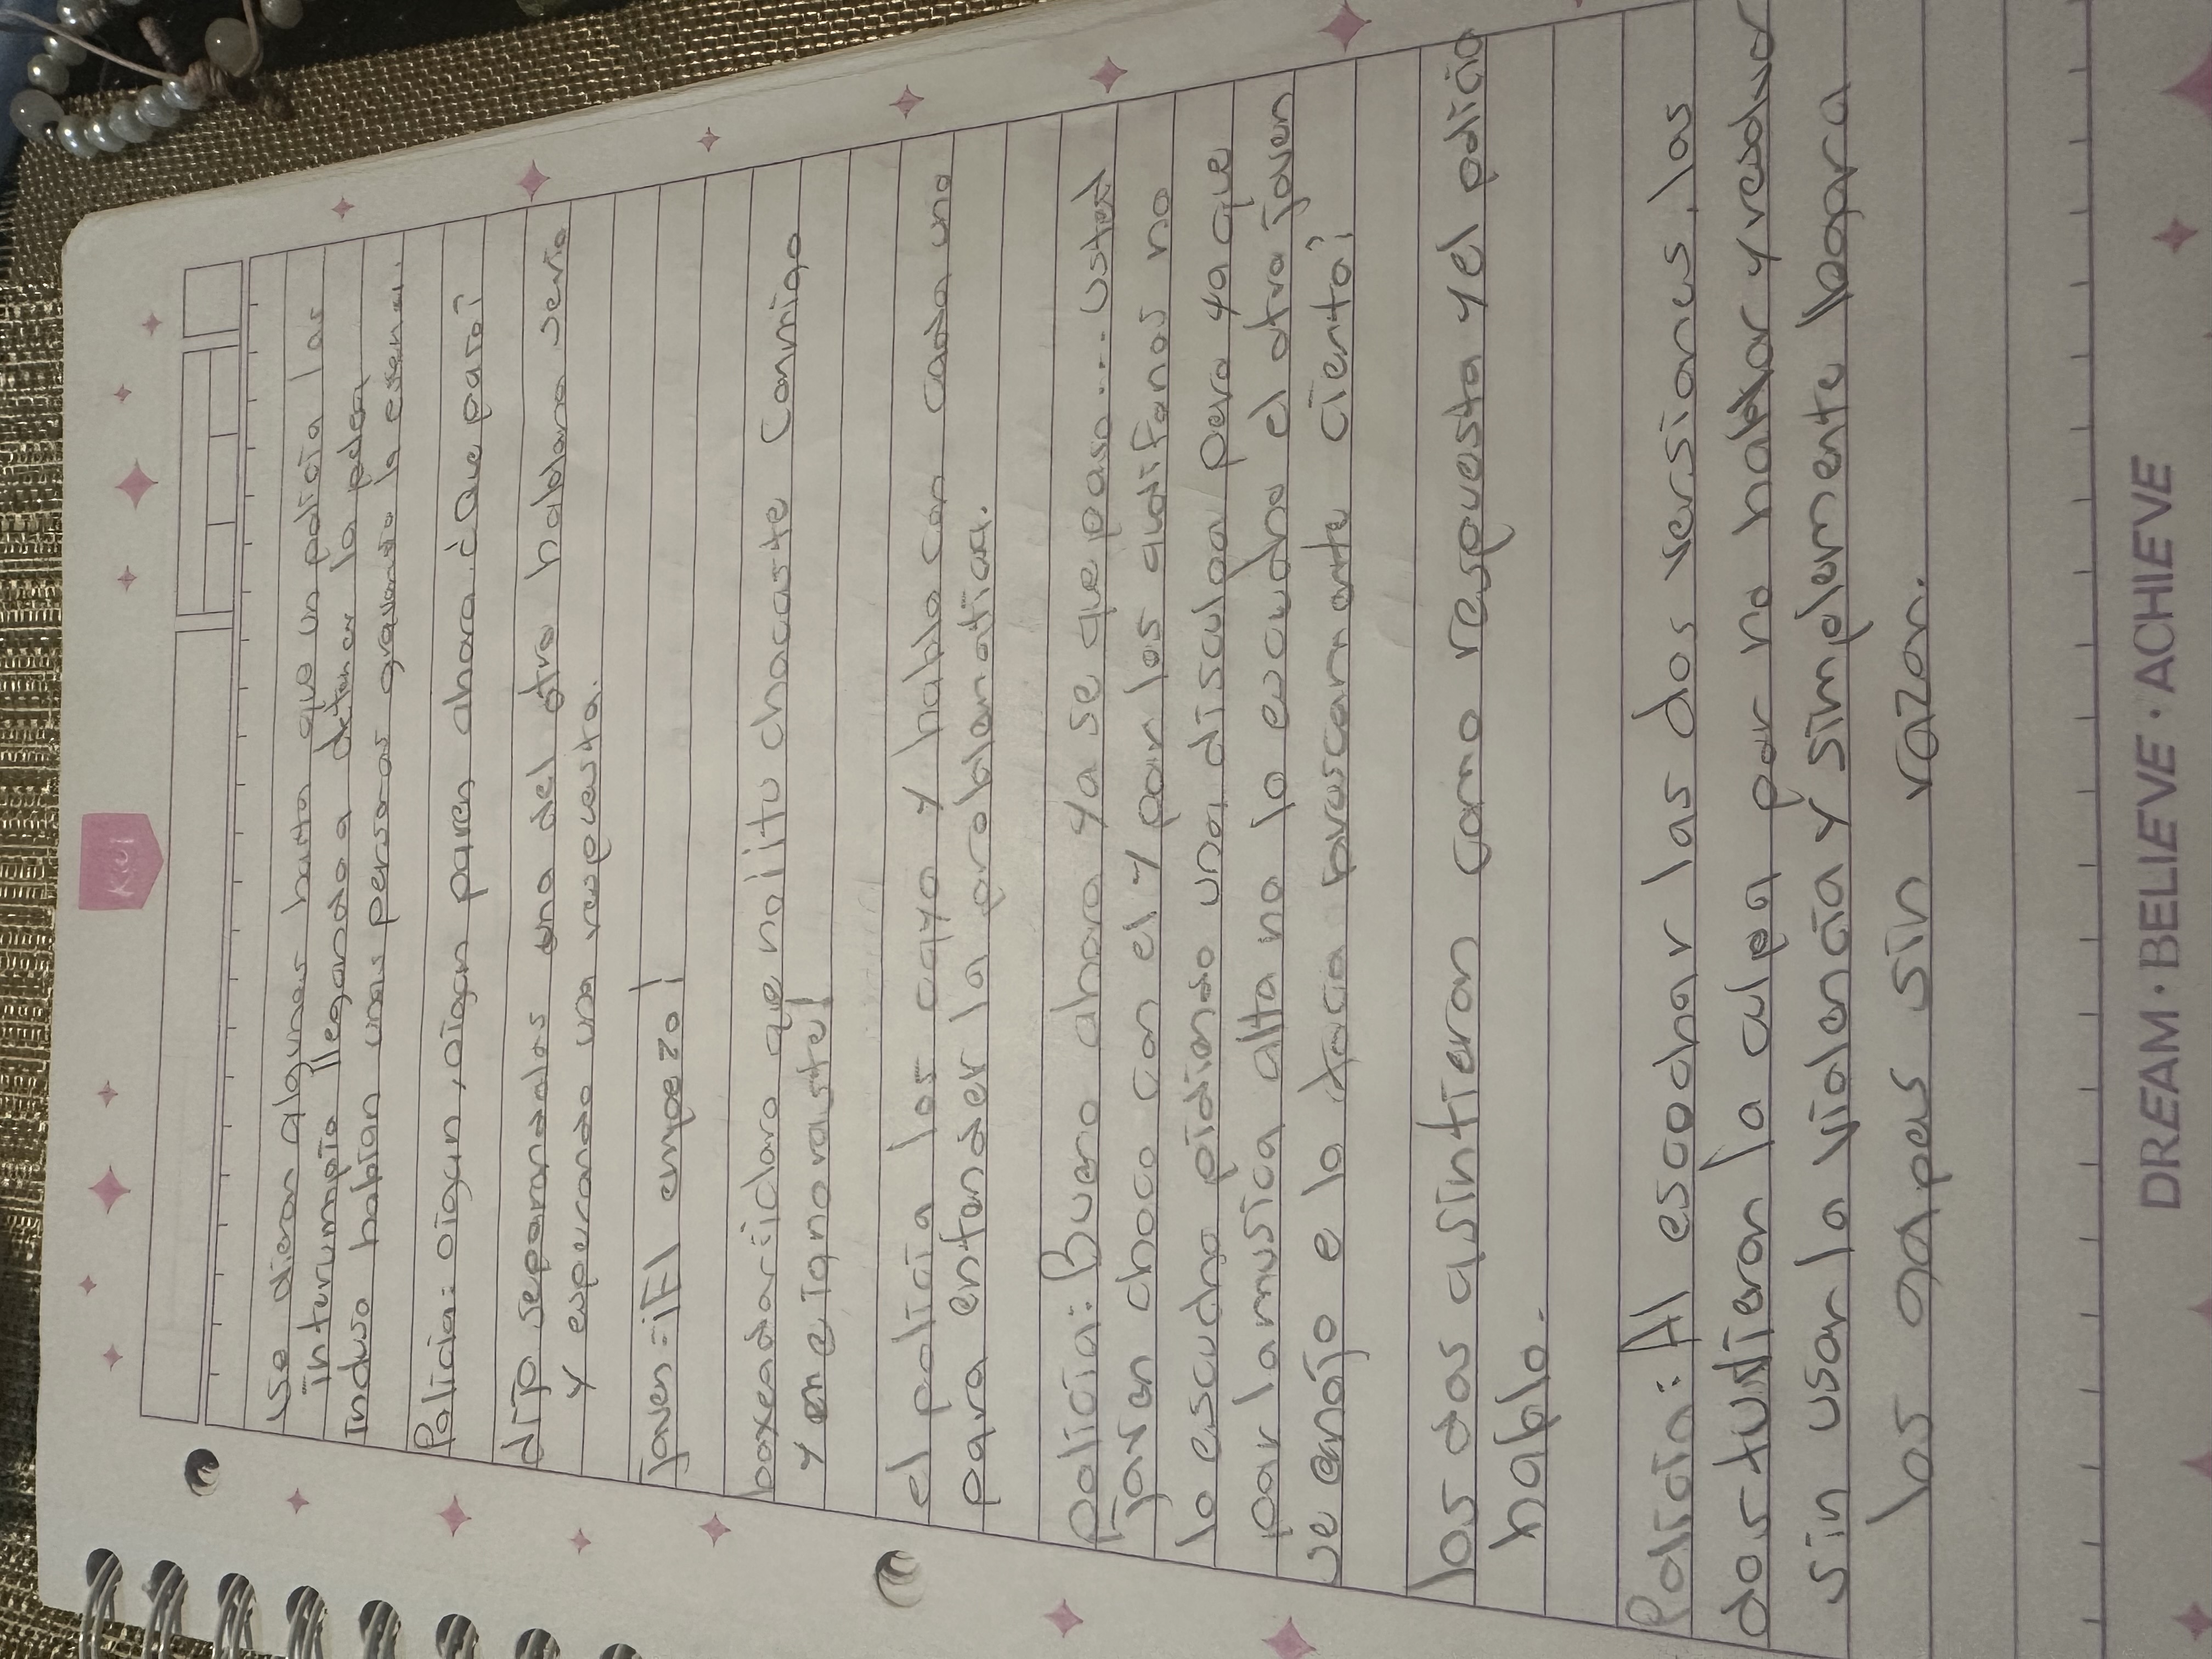 Kiut
se dieron algunos hasta que un policia los
interrumpio llegando a detener la pelea
Incluso habian unas personas grabando la escena.
Policia: oigan, oigan paren ahora ¿Que paso?
dijo separandolos uno del otro hablano serio
y esperando una respuesta.
joven: ¡El empezo!
boxeador: ¡claro que no! ¡tu chocaste conmigo
y me ignoraste!
el policia los cayo y hablo con cada uno
para entender la problematica.
policia: Bueno ahora ya se que paso... usted
joven choco con el y por los audifonos no
lo escucho pidiendo una disculpa pero ya que
por la musica alta no lo escucho el otro joven
se enojo e lo toco broscamente ¿cierto?
los dos asintieron como respuesta y el policia
hablo.
Policia: Al escochar las dos versiones, los
dos tuvieron la culpa por no hablar y resolver
sin usar la violencia y simplemente logara
los golpes sin razon.
DREAM · BELIEVE · ACHIEVE